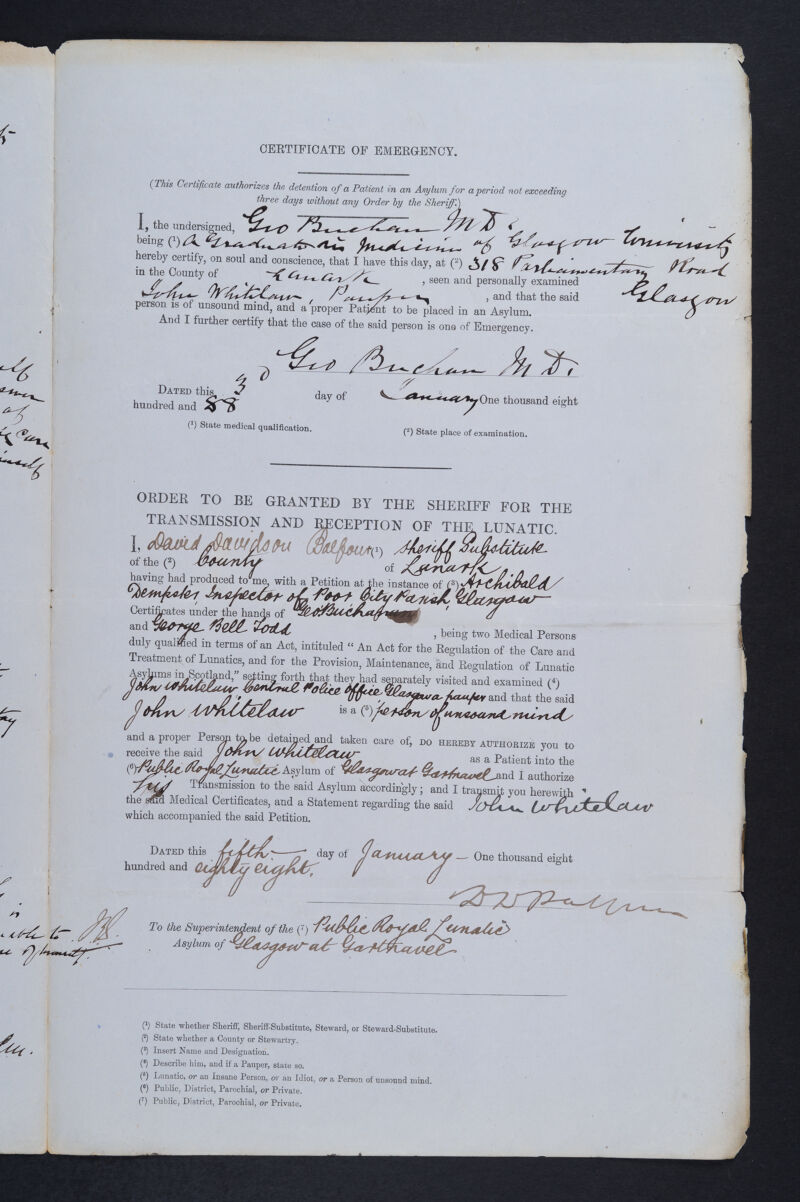 CERTIFICATE OF EMERGENCY.
(This Certificate authorizes the detention of a Patient in an Asylum for a period not exceeding
three days without any Order by the Sheriff.)
I, the undersigned, Geo Buchan M D.
being (¹) A Graduate in Medicine of Glasgow University
hereby certify, on soul and conscience, that I have this day, at (²) 318 Parliamentary Road
Glasgow
in the County of Lanark , seen and personally examined
John Whitelaw, Pauper , and that the said
person is of unsound mind, and a proper Patient to be placed in an Asylum.
And I further certify that the case of the said person is one of Emergency.
Geo Buchan M D.
DATED this 3d day of January One thousand eight
hundred and 88
(¹) State medical qualification. (²) State place of examination.
ORDER TO BE GRANTED BY THE SHERIFF FOR THE
TRANSMISSION AND RECEPTION OF THE LUNATIC.
I, David Davidson Balfour (¹) Sheriff Substitute
of the (²) County of Lanark
having had produced to me, with a Petition at the instance of (³) Archibald
Dempster Inspector of Poor City Parish, Glasgow
Certificates under the hands of Geo Buchan
and George Bell Todd , being two Medical Persons
duly qualified in terms of an Act, intituled " An Act for the Regulation of the Care and
Treatment of Lunatics, and for the Provision, Maintenance, and Regulation of Lunatic
Asylums in Scotland," setting forth that they had separately visited and examined (⁴)
John Whitelaw Central Police Office Glasgow a pauper and that the said
John Whitelaw is a (⁵) person of unsound mind
and a proper Person to be detained and taken care of, DO HEREBY AUTHORIZE you to
receive the said John Whitelaw as a Patient into the
(⁶) Public Royal Lunatic Asylum of Glasgow at Gartnavel and I authorize
his Transmission to the said Asylum accordingly; and I transmit you herewith
the said Medical Certificates, and a Statement regarding the said John Whitelaw
which accompanied the said Petition.
DATED this fifth day of January One thousand eight
hundred and eighty eight.
D D Balfour
To the Superintendent of the (⁷) Public Royal Lunatic
Asylum of Glasgow at Gartnavel
(¹) State whether Sheriff, Sheriff-Substitute, Steward, or Steward-Substitute.
(²) State whether a County or Stewartry.
(³) Insert Name and Designation.
(⁴) Describe him, and if a Pauper, state so.
(⁵) Lunatic, or an Insane Person, or an Idiot, or a Person of unsound mind.
(⁶) Public, District, Parochial, or Private.
(⁷) Public, District, Parochial, or Private.